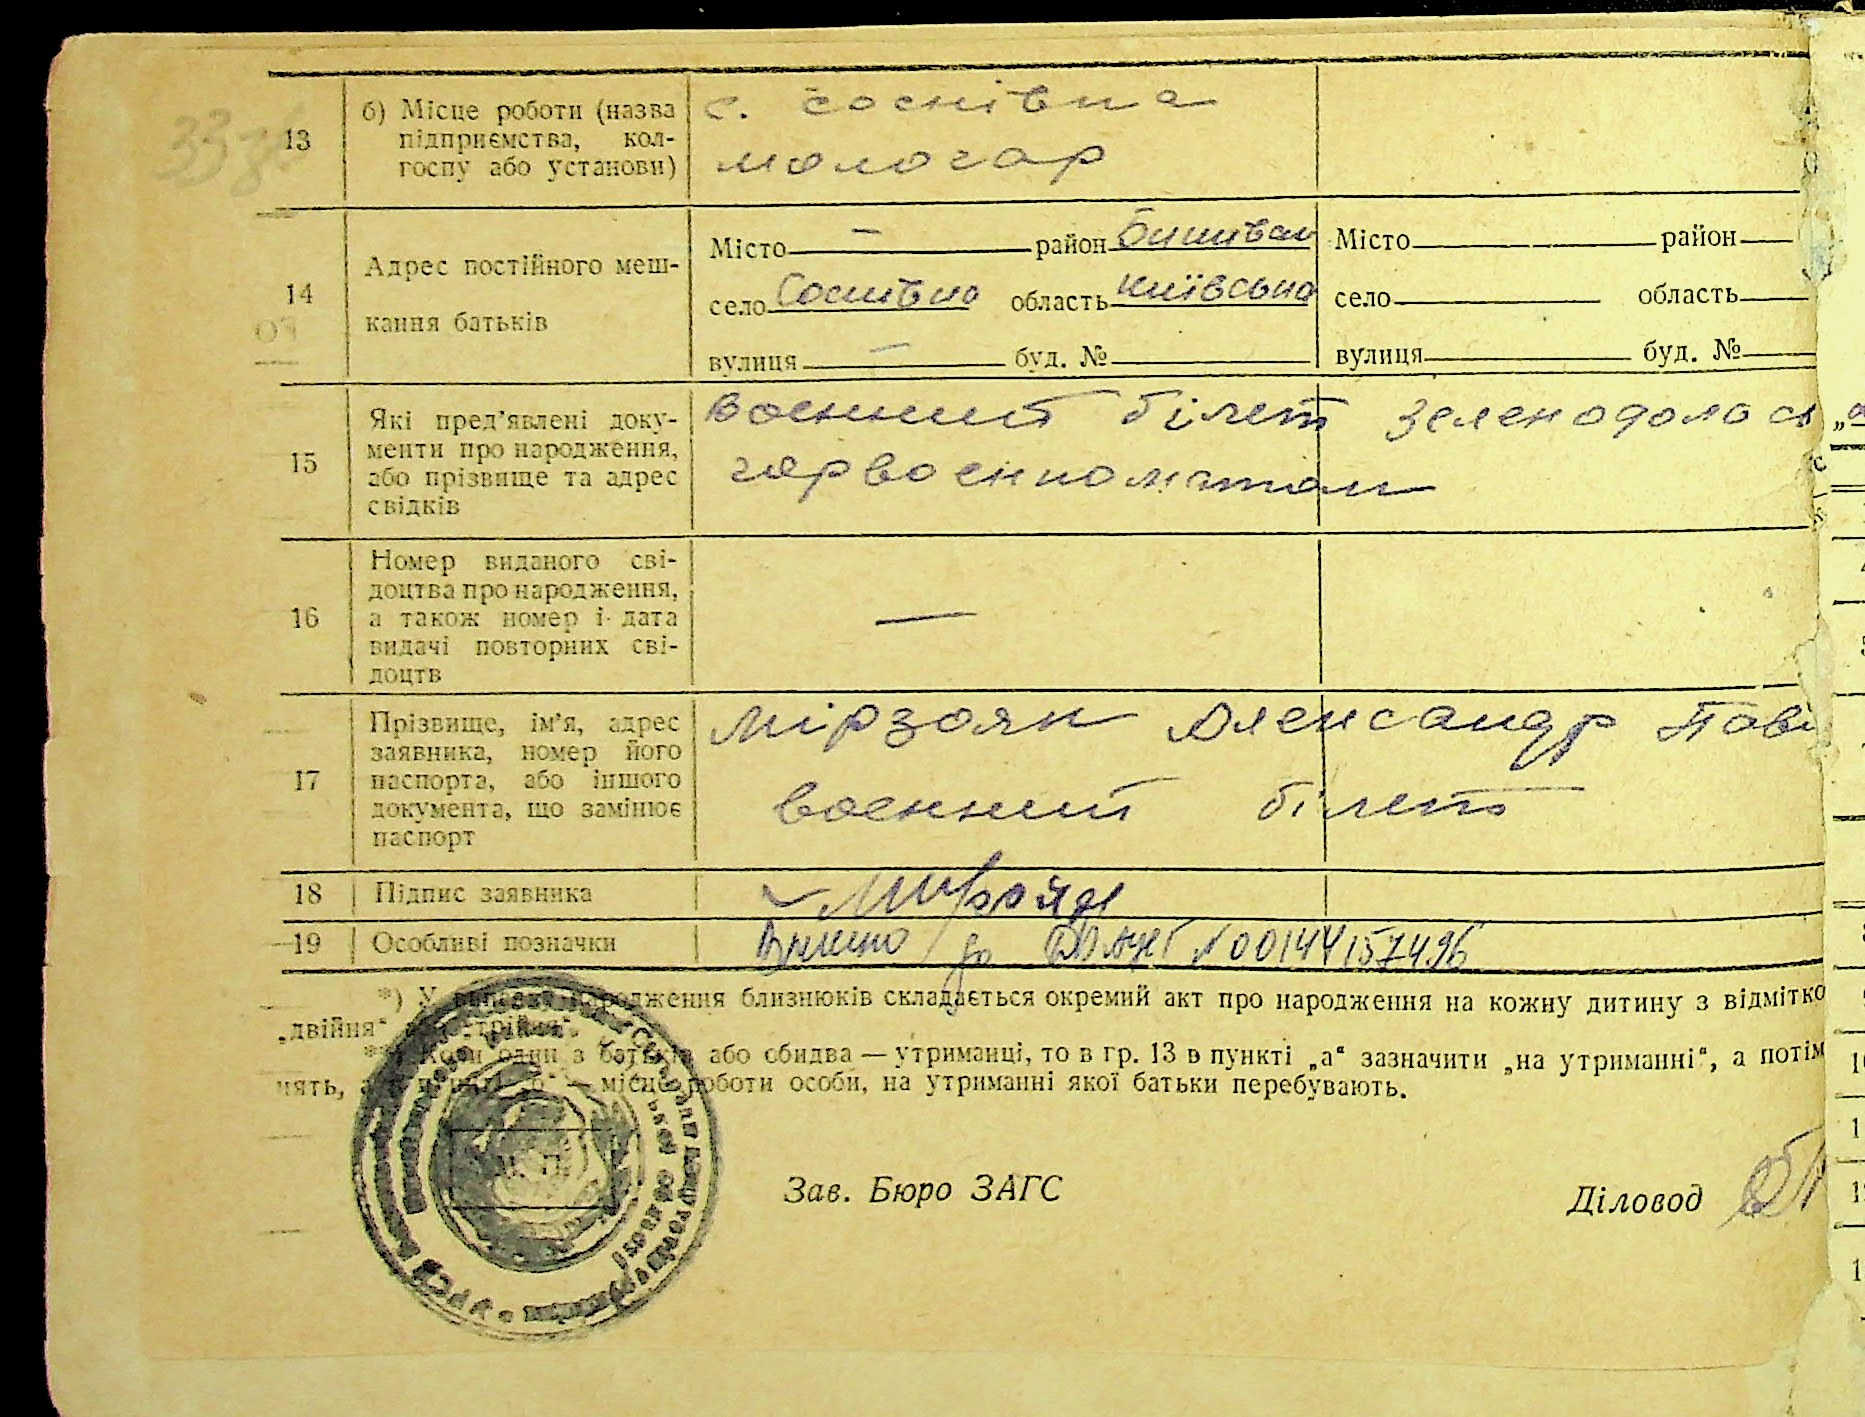 13
б) Місце роботи (назва
підприємства, кол-
госпу або установи)
с. Соснівка
молочар
14
Адрес постійного меш-
кання батьків
Місто — район
село Соснівка область київська
вулиця — буд. №
Місто район
село область
вулиця буд. №
15
Які пред’явлені доку-
менти про народження,
або прізвище та адрес
свідків
военний білет Зеленодольськ
горвоенкоматом
16
Номер виданого сві-
доцтва про народження,
а також номер і дата
видачі повторних сві-
доцтв
—
17
Прізвище, ім’я, адрес
заявника, номер його
паспорта, або іншого
документа, що замінює
паспорт
Мірзоян Александр Пав
военний білет
18
Підпис заявника
19
Особливі позначки
до ДРАЦСГ №00144157496
*) У випадку народження близнюків складається окремий акт про народження на кожну дитину з відмітко
„двійня“ або „трійня“.
**) Коли один з батьків або обидва — утриманці, то в гр. 13 в пункті „а“ зазначити „на утриманні“, а потім
нять, а в пункті „б“ — місце роботи особи, на утриманні якої батьки перебувають.
М. П.
Зав. Бюро ЗАГС
Діловод